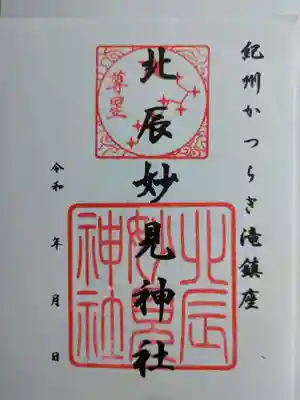 紀州かつらぎ滝鎮座
尊星
北辰妙見神社
北辰
妙見
神社
令和　年　月　日